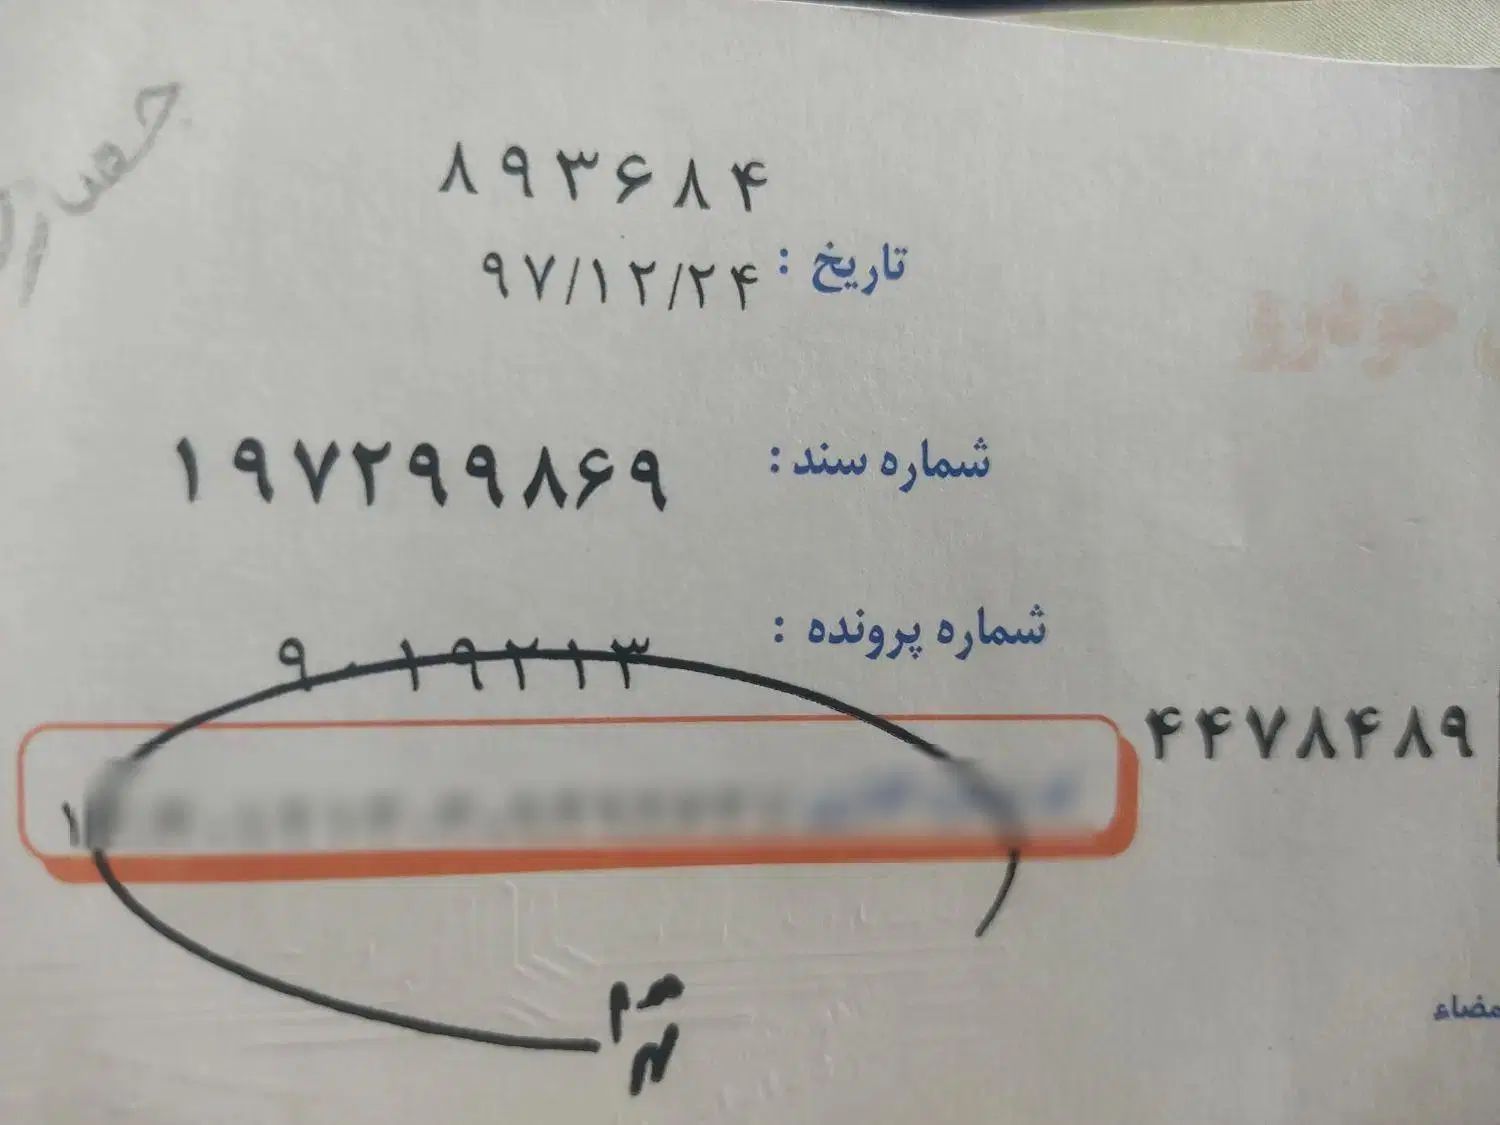 ۸۹۳۶۸۴
تاریخ : ۹۷/۱۲/۲۴
شماره سند : ۱۹۷۲۹۹۸۶۹
شماره پرونده : ۹۰۱۹۲۱۳
۴۴۷۸۴۸۹
خودرو
مضاء